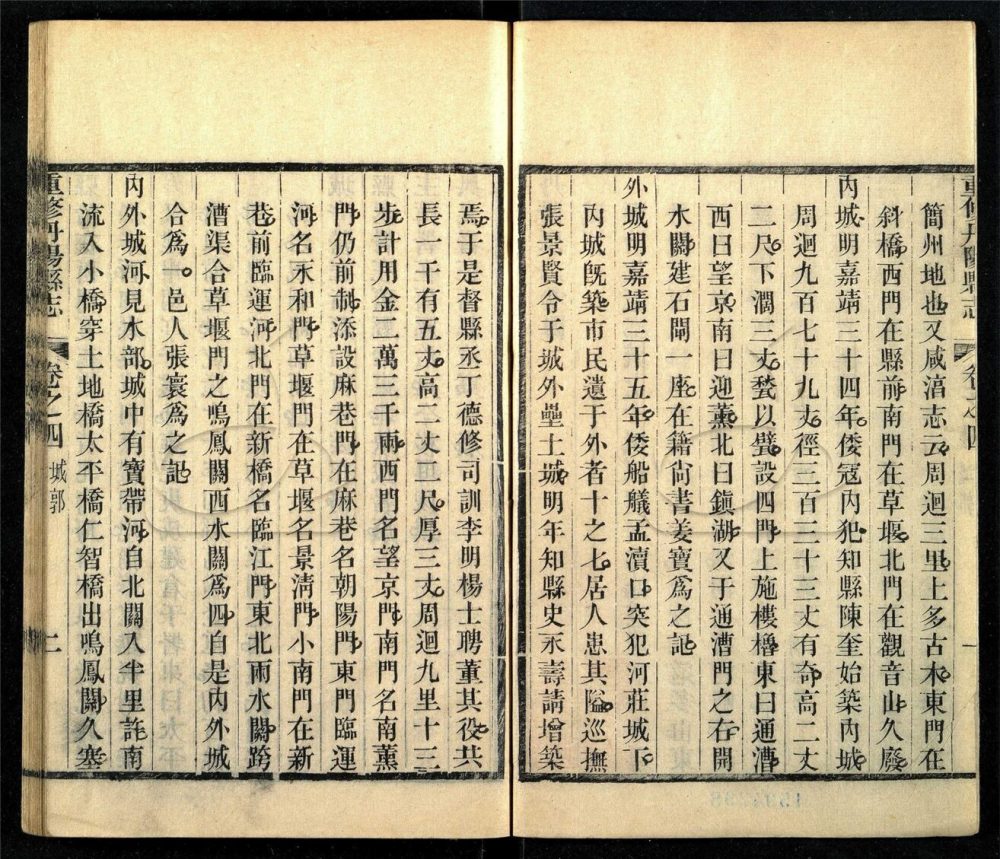 簡州地也又咸淓志云周迴三里上多古木東門在
斜橋西門在縣前南門在草堰北門在觀音山久廢
內城明嘉靖三十四年倭寇內犯知縣陳奎始築內城
周迴九百七十九丈徑三百三十三丈有奇高二丈
二尺下濶三丈甃以甓設四門上施樓櫓東曰通漕
西曰望京南曰迎薰北曰鎮湖又于通漕門之右開
水關建石閘一座在籍尙書姜寶爲之記
外城明嘉靖三十五年倭船艤孟瀆口突犯河莊城下
內城旣築市民遺于外者十之七居人患其隘巡撫
張景賢令于城外壘土城明年知縣史永壽請增築
焉于是督縣丞丁德修司訓李明楊士聘董其役共
長一千有五丈高二丈二尺厚三丈周迴九里十三
步計用金二萬三千兩西門名望京門南門名南薰
門仍前制添設麻巷門在麻巷名朝陽門東門臨運
河名永和門草堰門在草堰名景淸門小南門在新
巷前臨運河北門在新橋名臨江門東北兩水關跨
漕渠合草堰門之鳴鳳關西水關爲四自是內外城
合爲一邑人張寰爲之記
內外城河見水部城中有寶帶河自北關入半里許南
流入小橋穿土地橋太平橋仁智橋出鳴鳳關久塞
重修丹陽縣志
卷之四
城郭
二
重修丹陽縣志
卷之四
一